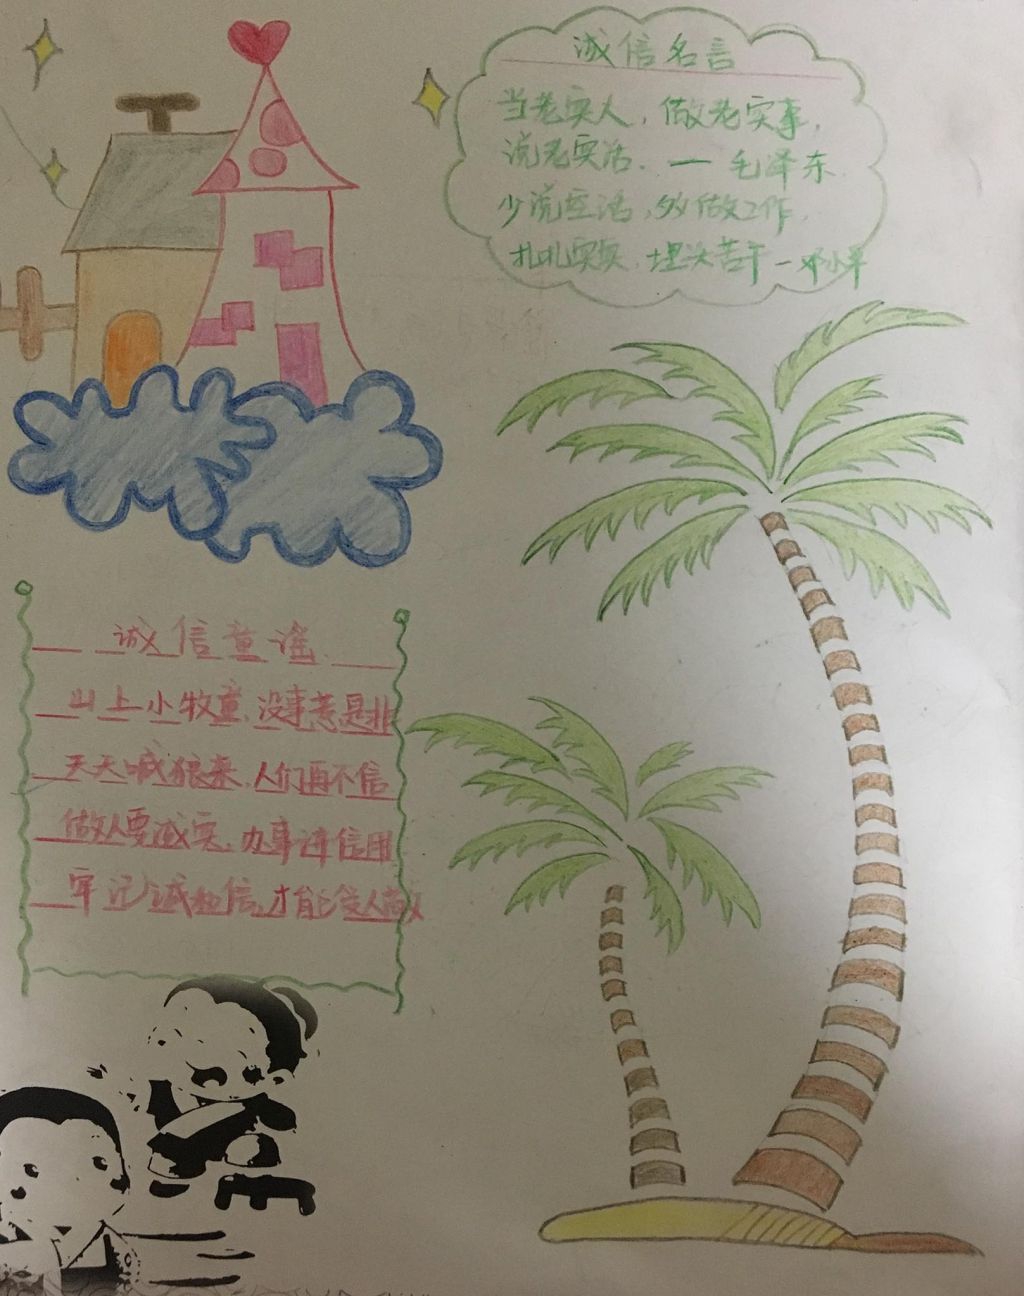 诚信名言
当老实人，做老实事，
说老实话. — 毛泽东.
少说空话，多做工作，
扎扎实实，埋头苦干 — 邓小平
诚信童谣
山上小牧童，没事惹是非
天天喊狼来，人们再不信
做人要诚实，办事讲信用
牢记诚和信，才能受人敬